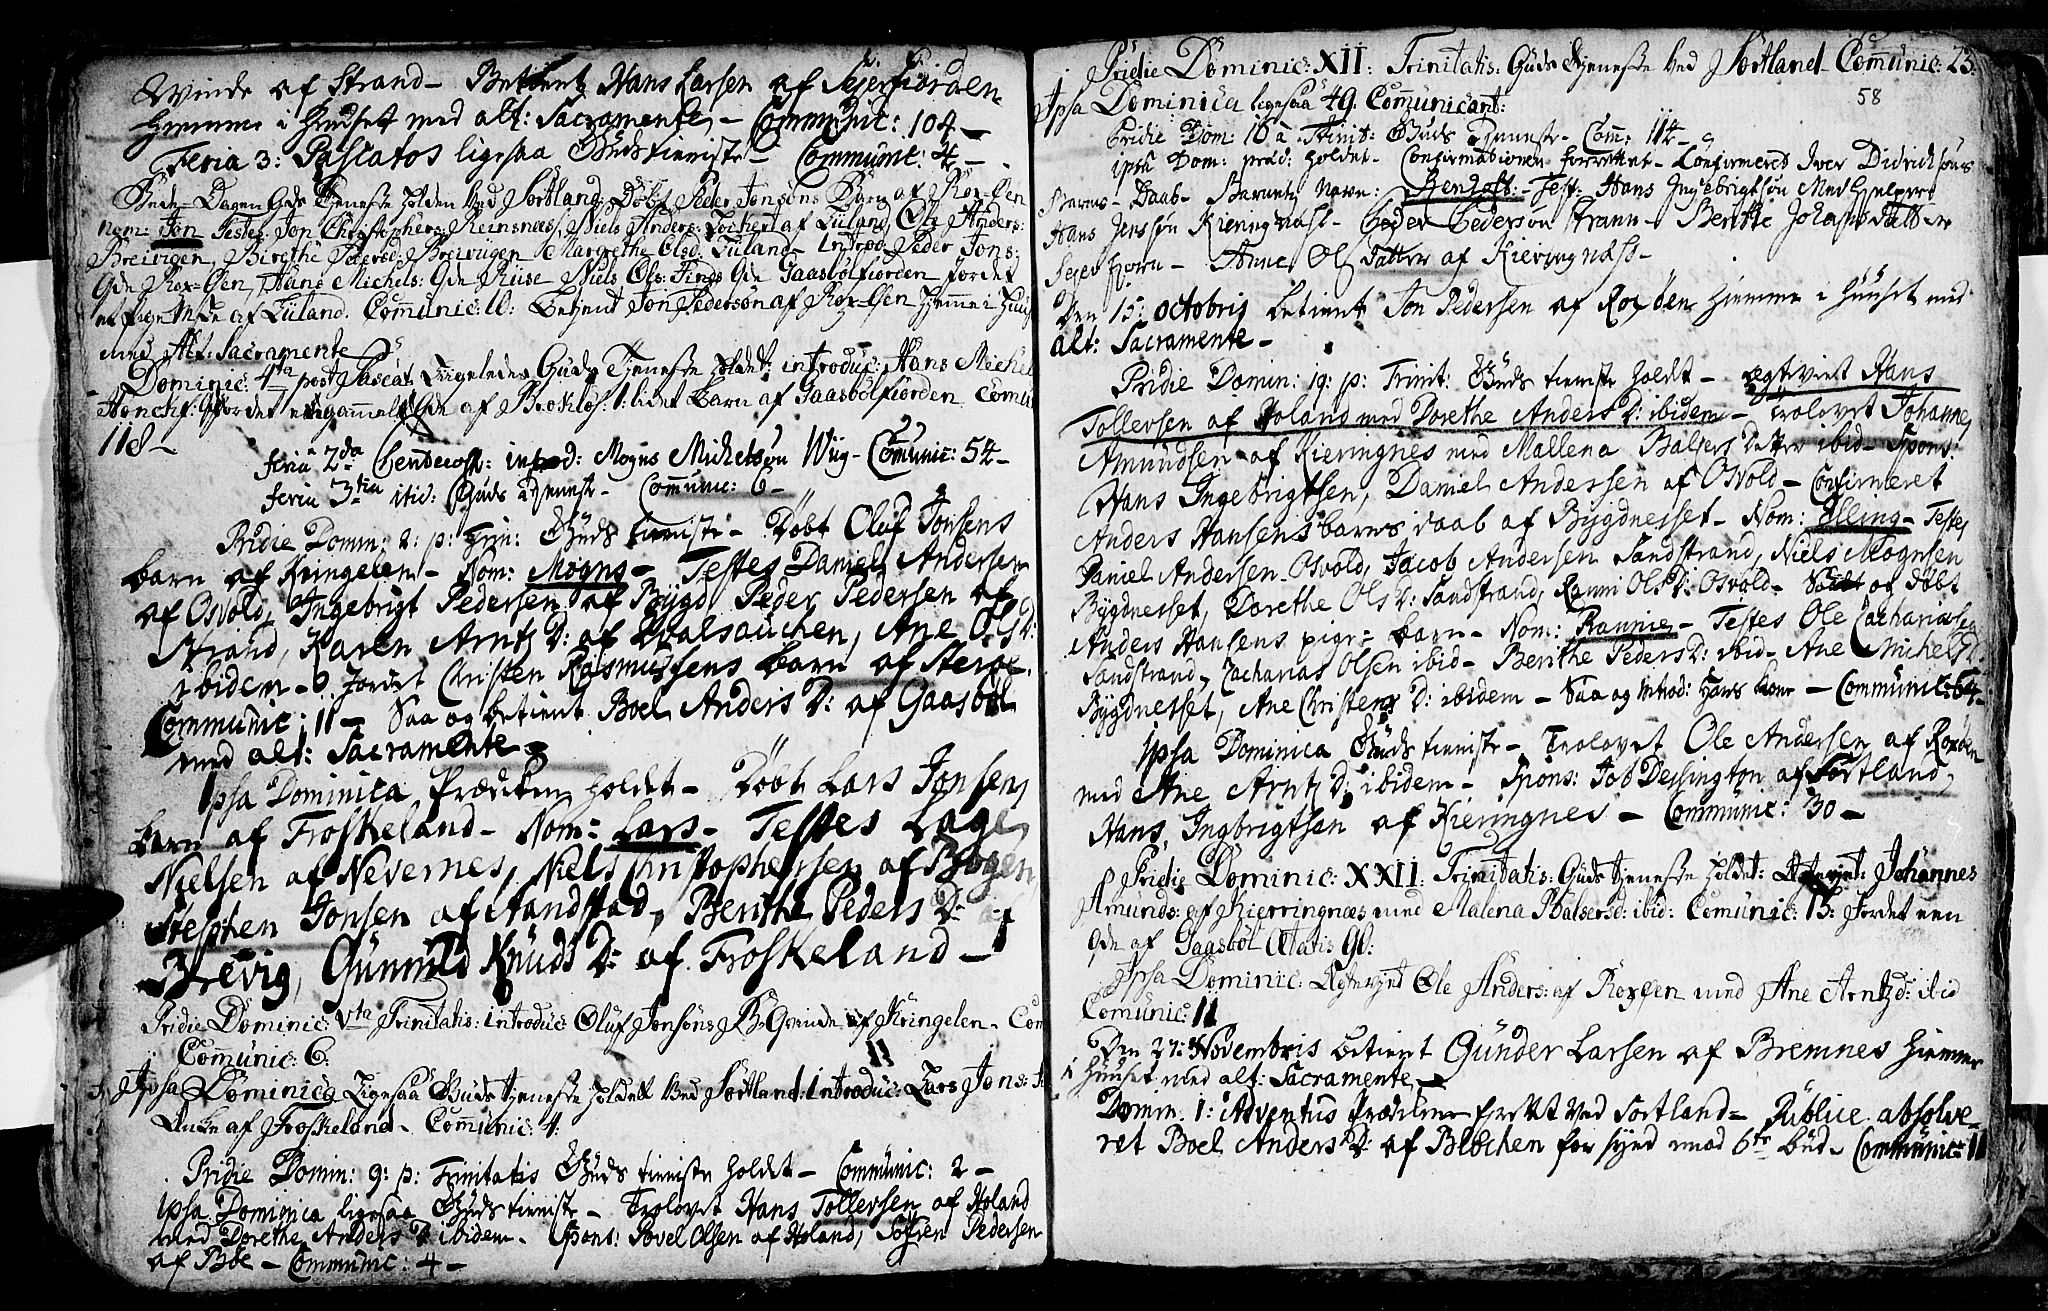 Qvinde af Strand – Betient Hans Larsen af Sejerfiorden
hiemme i Huuset med alt: Sacramente – Communic: 104 –
Feria 3: Pascatos ligesaa Guds tieniste – Communic: 4 –
Bede-Dagen Gds Tjeneste holden Ved Sortland, Døbt Peder Jonsøns Barn af Rox-Øen
Nom: Jon Testes Jon Christophers: Reinsnæs, Niels Anders: Lockert af Liiland, Ole Anders:
Breivigen, Birethe Pedersd: Breivigen Margrethe Olsd: Liiland – Introd: Peder Jons:
Qde Rox-Øen, Hans Michels: Qde Niels Ols: Qde Gaasbølfiorden Jordet
et Pige af Liiland. Communic: 10: Betient Jon Pedersøn af Rox-Øen hjemme i Huuset
med Alt: Sacramente
Dominic: 4ta post Pascat. Ligeledes Guds Tjeneste holdet: introduc: Hans Michel
Qde Jordet en gammel Qde af Brokløs: 1 lidet Barn af Gaasbølfiorden. Comu
118 –
feria 2da Pentecost: introd: Mogns Michelsøn Wiig – Comunic: 54 –
feria 3tia itid: Guds tieneste – Communic: 6 –
Pridie Domin: 2: p: Trin: Guds tieniste – Døbt Oluf Jonsens
barn af Kringelen – Nom: Mogns – Testes Daniel Andersen
af Osvold, Ingebrigt Pedersen af Bygd, Peder Pedersen af
Strand, Karen Arntz D: af Qvalsauchen, Ane Ols D:
ibidem – Jordet Christen Rasmussens barn af
Communic: 11 – Saa og betient Boel Anders D: af Gaasbøl
med alt: Sacramente –
Ipsa Dominica Prædiken holdet – Døbt Lars Jonsens
barn af Froskeland – Nom: Lars – Testes Lage
Nielsen af Nevernes, Niels Christophersen af Bogen
Stephen Jonsen af Sandstad, Berithe Peders D: af
Brevig, Gunnild Knuds D: af Froskeland –
Pridie Dominic: Vta Trinitatis: introduc: Oluf Jonsøns Qvinde af Kringelen – Com
Comunic: 6: 11
Ipsa Dominica Ligesaa Guds tjeneste holdet Ved Sortland: introduc: Lars Jons:
af Froskeland – Communic: 4:
Pridie Domin: 9: p: Trinitatis Guds tieniste holdet – Communic: 2 –
Ipsa Dominica ligesaa Guds tieniste – Trolovet Hans Tollersen af Holand
med Dorethe Anders D ibidem – Spons: Povel Olsen af Holand, Søfren Pedersen
af Bøe – Communic: 4 –
Pridie Dominic: XII: Trinitatis: Guds Tjeneste Ved Sortland – Comunic: 23:
58
Ipsa Dominica ligesaa 49: Communicant:
Pridie Dom: 16 a Trinit: Guds tjeneste – Com: 114 –
ipsa Dom: præd: holdet – Confirmationen forrettet – Confirmeret Iver Didrichsøns
Barns – Daab – Barnetz Navn: – Test: Hans Ingebrigtsøn Medhjelpere
Hans Jenssøn Kieringnæss – Peder Pedersøn Strann – Berithe Johans Datter
– Anne Ols Datter af Kieringnæss –
Den 15: octobris betient Jon Pedersen af Roxøen hiemme i Huuset med
alt: Sacramente –
Pridie Domin: 19: p: Trinit: Guds tieniste holdt – egteviet Hans
Tollersen af Holand med Dorethe Anders D: ibidem – Trolovet Johannes
Amundsen af Kieringnes med Mallena Balsers Datter ibid – Spons:
Hans Ingebrigtsen, Daniel Andersen af Osvold – Confirmeret
Anders Hansens barns daab af Bygdnesset – Nom: Elling – Testes
Daniel Andersen Osvold, Jacob Andersen Sandstrand, Niels Mognsen
Bygdnesset, Dorethe Ols D: Sandstrand, Ranni Ols D: Osvold – Saa og døbt
Anders Hansens pige-barn – Nom: Rannie – Testes Ole Zachariasen
Sandstrand, Zacharias Olsen ibid – Berithe Peders D: ibid – Ane Michels D:
Bygdnesset, Ane Christens D: ibidem – Saa og introd: hans kone – Communic: 64 –
Ipsa Dominica Guds tieniste – Trolovet Ole Andersen af Roxøen
med Ane Arntz D: ibidem – Spons: Job Dessington af Sortland,
Hans Ingbrigtsen af Kieringnes – Communic: 30 –
Pridie Dominic: XXII: Trinitatis: Guds tjeneste holdet: Ægteviet: Johannes
Amunds: af Kierringnæs med Malena Balsersd: ibid: Comunic: 15: Jordet een
Qde af Gaasbøl Ætatis 90:
Ipsa Dominic: Ægteviet Ole Anders: af Roxøen med Ane Arntzd: ibid
Comunic: 11
Den 27: Novembris betient Gunder Larsen af Bremnes hiemme
i Huuset med alt: Sacramente –
Domin. 1: Adventus Prædiken forrettet ved Sortland – Publice absolve-
ret Boel Anders D: af Blochen for synd mod 6te bud – Communic: 11